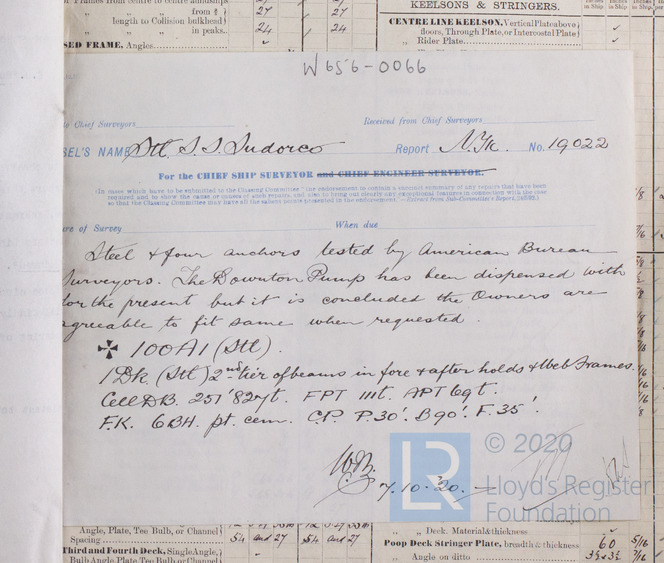 Frames from centre to centre amidships
27 27
from 1/5
length to Collision bulkhead 24 24
in peaks..
SED FRAME, Angles
KEELSONS & STRINGERS.
Inches in Ship
CENTRE LINE KEELSON, Vertical Plate above floors, Through Plate, or Intercostal Plate
" Rider Plate
W656-0066
to Chief Surveyors
Received from Chief Surveyors
SEL'S NAME Stl S.S. Sudorco Report N.Yk. No. 19022
For the CHIEF SHIP SURVEYOR and CHIEF ENGINEER SURVEYOR.
"In cases which have to be submitted to the Classing Committee the endorsement to contain a succinct summary of any repairs that have been
required and to show the cause, or causes of such repairs, and also to bring out clearly any exceptional features in connection with the case
so that the Classing Committee may have all the salient points presented in the endorsement."—Extract from Sub-Committee's Report,
ure of Survey When due
Steel & four anchors tested by American Bureau
Surveyors. The Downton Pump has been dispensed with
for the present but it is concluded the Owners are
agreeable to fit same when requested.
✠ 100A1 (Stl).
1 Dk (Stl) 2nd tier of beams in fore & after holds & Web Frames.
Cell DB. 251' 827t. FPT 111t. APT 69t.
F.K. 6BH. pt. cem. C.P. P.30'. B90'. F.35'.
7.10.20.
LR © 2020
Lloyd's Register
Foundation
Angle, Plate, Tee Bulb, or Channel
Spacing 54 and 27 54 and 27
Third and Fourth Deck, Single Angle,
Bulb Angle, Plate, Tee Bulb, or Channel
" Deck. Material & thickness
Poop Deck Stringer Plate, breadth & thickness 60 5/16
" Angle on ditto 3½x3½ 7/16